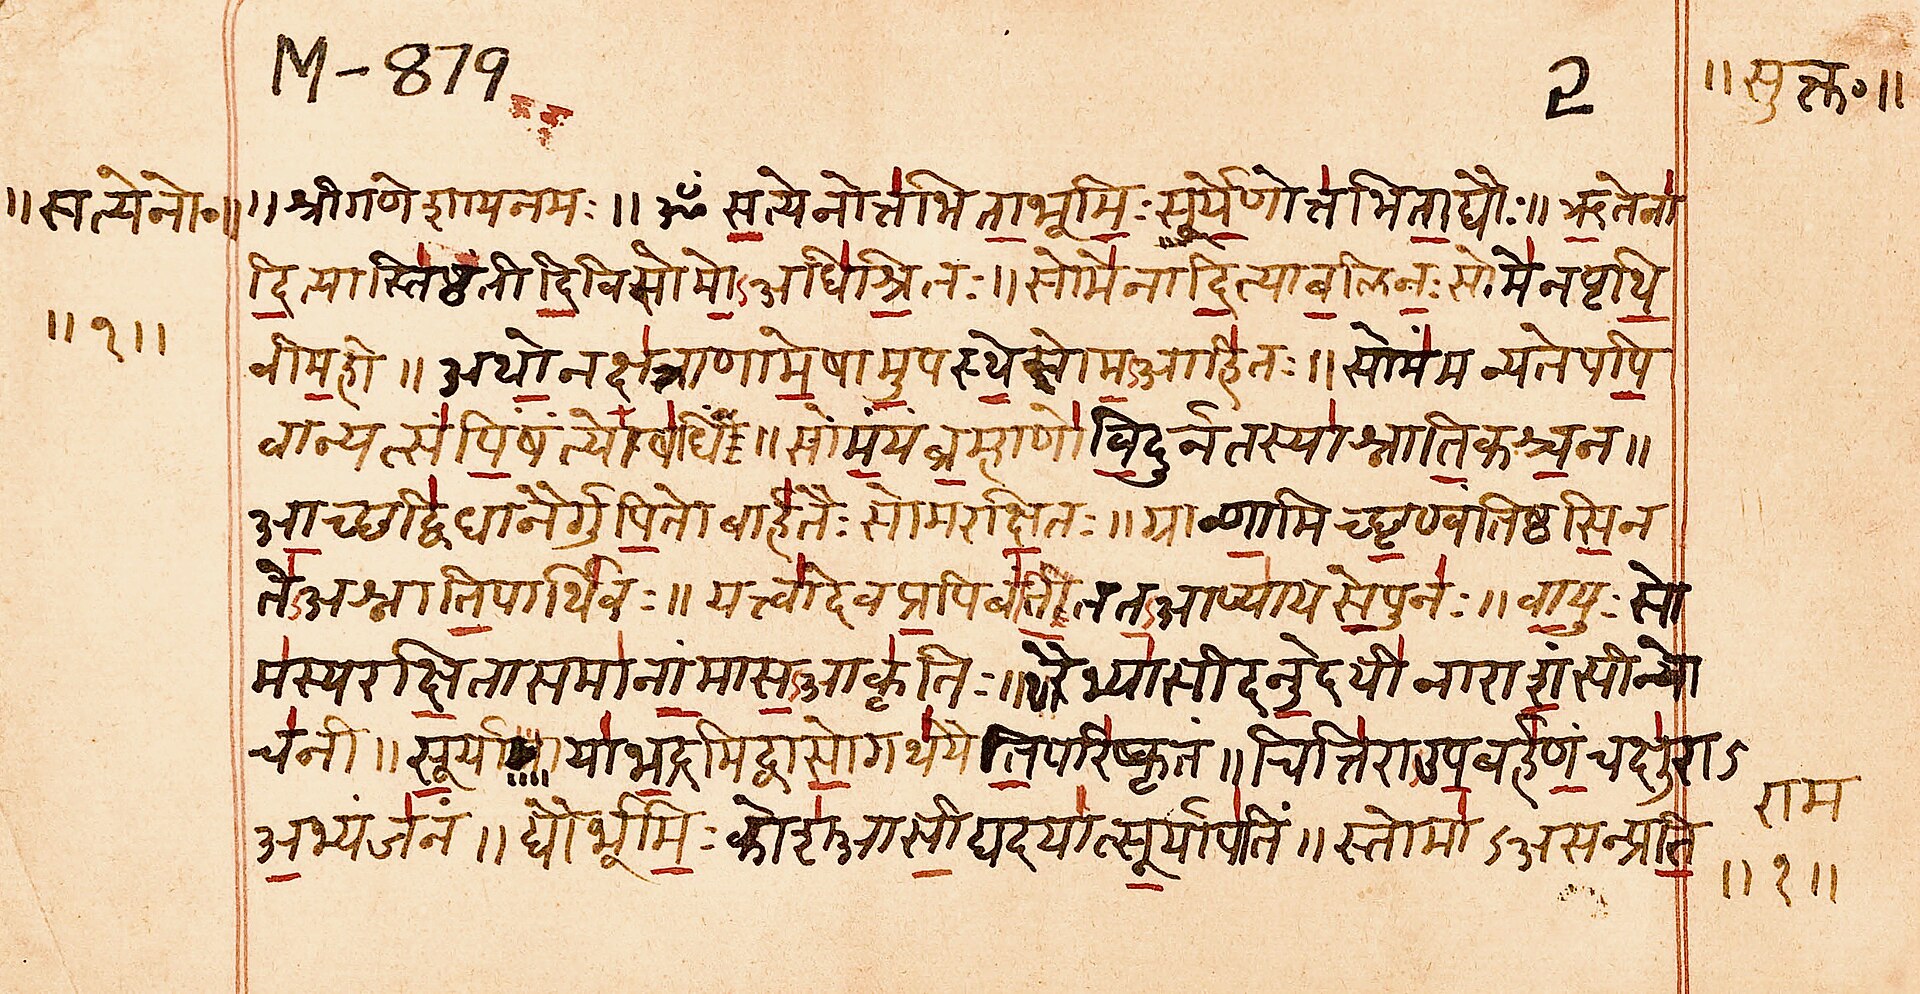 M-879
2
॥ सुक्त॰ ॥
॥ सत्येनो॰ ॥
॥ श्रीगणेशायनमः ॥ ॐ सत्येनोत्तभिताभूमिः सूर्येणोत्तभिताद्यौः ॥ ऋतेना
दित्यास्तिष्ठंतीदिविसोमोऽअधिश्रितः ॥ सोमेनादित्याबलिनः सोमेनपृथि
॥ १ ॥
वीमही ॥ अथोनक्षत्राणामेषामुपस्थेसोमऽआहितः ॥ सोमंमन्यतेपपि
वान्यत्संपिषंत्योषधिं ॥ सोमंयंब्रह्माणोविदुर्नतस्याश्नातिकश्चन ॥
आच्छद्विधानैर्गुपितोबार्हतैः सोमरक्षितः ॥ ग्राव्णामिच्छृण्वंतिष्ठसिन
तेऽअश्नातिपार्थिवः ॥ यत्त्वादेवप्रपिबंतिततऽआप्यायसेपुनः ॥ वायुः सो
मस्यरक्षितासमानांमासऽआकृतिः ॥ रैभ्यासीदनुदेयीनाराशंसीन्यो
चनी ॥ सूर्यायाभद्रमिद्वासोगथयैतिपरिष्कृतं ॥ चित्तिराउपबर्हणंचक्षुराऽ
अभ्यंजनं ॥ द्यौर्भूमिः कोशऽआसीद्यदयात्सूर्यापतिं ॥ स्तोमाऽअसन्प्रति
राम
॥ १ ॥